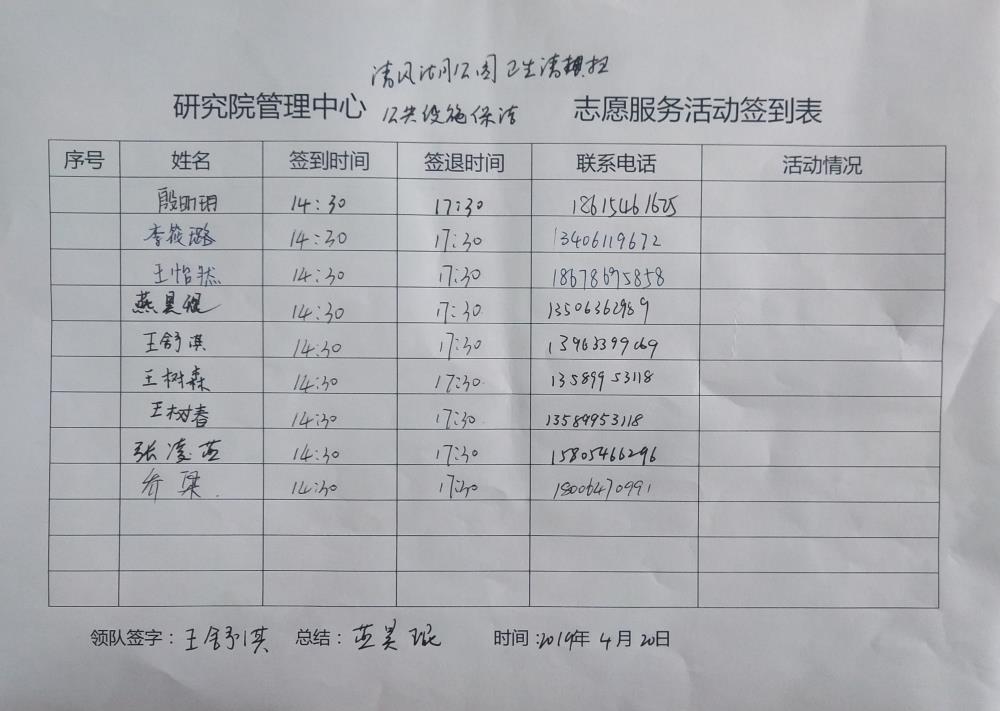 清风湖公园卫生清扫
研究院管理中心 公共设施保洁 志愿服务活动签到表
序号 姓名 签到时间 签退时间 联系电话 活动情况
殷明玥 14:30 17:30 18615461625
李筱璐 14:30 17:30 13406119672
王怡然 14:30 17:30 18678695858
燕昊琨 14:30 17:30 13506362989
王舒淇 14:30 17:30 13963399069
王树森 14:30 17:30 13589953118
王树春 14:30 17:30 13589953118
张凌燕 14:30 17:30 15805466296
乔梁 14:30 17:30 18006470991
领队签字：王舒淇 总结：燕昊琨 时间：2019年4月20日